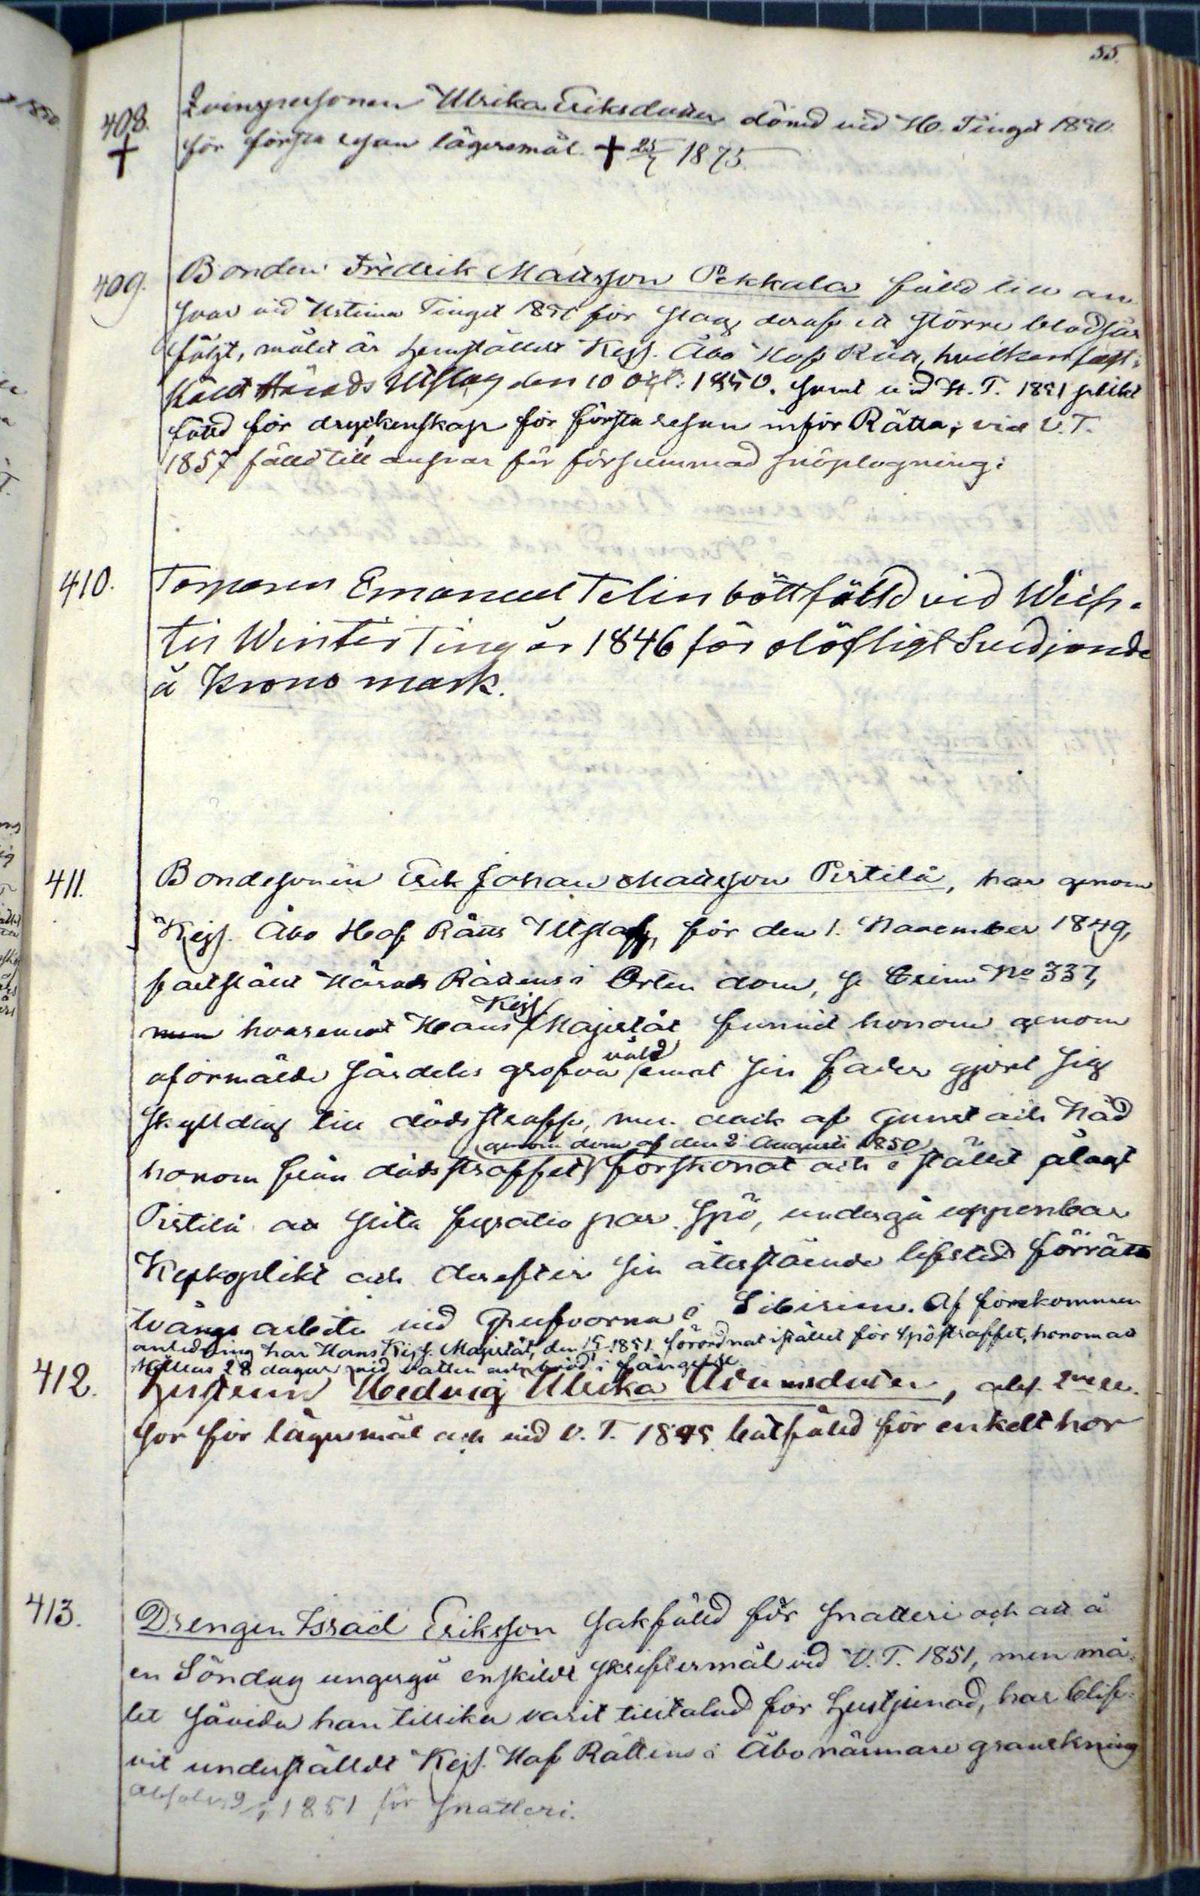 55.
408. Qvinspersonen Ulrika Eriksdotter dömd vid H. Tinget 1850
† för första resan lägersmål. † 25/7 1875.
409. Bonden Fredrik Mattsson Pekkala fälld till an
svar vid Urtima Tinget 1850 för slag deraf ett större blodsår
följt, målet är hemställdt Kejs. Åbo Hof Rätt, hvilken fast-
ställt Härads Utslag den 10 Oct: 1850. samt vid H. T. 1851 plikt
fälld för dryckenskap för första resan inför Rätta; vid V. T.
1857 fälld till ansvar för försummad snöplogning:
410. Torparen Emanuel Telin bötfälld vid
Winter Ting år 1846 för olofligt Svedjande
å Krono mark.
411. Bondesonen Erik Johan Mattsson Pistilä, har genom
Kejs. Åbo Hof Rätts Utslag, för den 1. November 1849,
fastställt Härads Rättens i Orten dom, se Crim No 337,
men hvaremot Hans Kejs. Majestät funnit honom genom
oförmälde särdeles grofva våld emot sin fader gjort sig
skylldig till dödsstraff, men dock af Gunst och Nåd
genom dom af den 2 Augusti 1850
honom från dödsstraffet förskonat och i stället ålagt
Pistilä att slita fyratio par Spö, undergå uppenbar
Kyrkoplikt och derefter sin återstående lifstid förrätta
tvångs arbete vid Grufvorna i Sibirien. Af förekommen
anledning har Hans Kejs. Majestät, den 15 1851 förordnat istället för Spöstraffet, honom att
hållas 28 dagar vid vatten och bröd i fängelse.
412. Hustrun Hedvig Ulrika
sor för lägersmål och vid V. T. 1845 bötfälld för enkelt hor
413. Drengen Israel Eriksson sakfälld för snatteri och att å
en Söndag undergå enskildt skriftermål vid V. T. 1851, men må-
let såvida han tillika varit tilltalad för tjufnad, har blif-
vit underställdt Kejs. Hof Rättens i Åbo närmare granskning
1851 för snatteri.